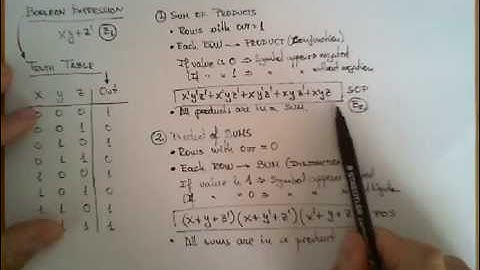 BOOLEAN EXPRESSION
xy+z' E1
TRUTH TABLE
x y z Out
0 0 0 1
0 0 1 0
0 1 0 1
0 1 1 0
1 0 0 1
1 0 1 0
1 1 0 1
1 1
① SUM OF PRODUCTS
• ROWS WITH OUT=1
• EACH ROW → PRODUCT (Conjunction)
If value is 0 ⇒ Symbol appears negated
(If " " 1 ⇒ " " without negation
x'y'z'+x'yz'+xy'z'+xyz'+xyz SOP
• All products are in a sum E2
② Product of SUMS
• ROWS WITH OUT = 0
• EACH ROW → SUM
If value is 1 ⇒ Symbol appears
If " " 0 ⇒ " "
(x+y+z')(x+y'+z')(x'+y+z POS
• All sums are in a product